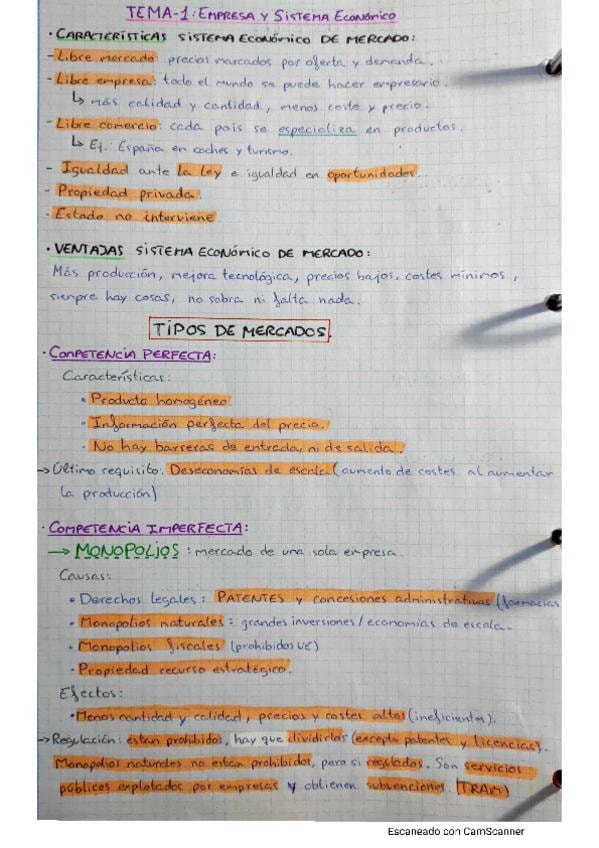 TEMA-1: EMPRESA Y SISTEMA ECONÓMICO
· CARACTERÍSTICAS SISTEMA ECONÓMICO DE MERCADO:
- Libre mercado: precios marcados por oferta y demanda.
- Libre empresa: todo el mundo se puede hacer empresario.
↳ más calidad y cantidad, menos coste y precio.
- Libre comercio: cada país se especializa en productos.
↳ Ej.: España en coches y turismo.
- Igualdad ante la ley e igualdad en oportunidades.
- Propiedad privada.
- Estado no interviene.
· VENTAJAS SISTEMA ECONÓMICO DE MERCADO:
Más producción, mejora tecnológica, precios bajos, costes mínimos,
siempre hay cosas, no sobra ni falta nada.
TIPOS DE MERCADOS.
· COMPETENCIA PERFECTA:
Características:
• Producto homogéneo.
• Información perfecta del precio.
• No hay barreras de entrada, ni de salida.
→ Último requisito: Deseconomías de escala (aumento de costes al aumentar
la producción)
· COMPETENCIA IMPERFECTA:
→ MONOPOLIOS: mercado de una sola empresa.
Causas:
• Derechos legales: PATENTES y concesiones administrativas (farmacias
• Monopolios naturales: grandes inversiones / economías de escala.
• Monopolios fiscales (prohibidos UE)
• Propiedad recurso estratégico.
Efectos:
• Menos cantidad y calidad, precios y costes altos (ineficientes).
→ Regulación: están prohibidos, hay que dividirlos (excepto patentes y licencias).
Monopolios naturales no están prohibidos, pero sí regulados. Son servicios
públicos explotados por empresas y obtienen subvenciones. (TRAM)
Escaneado con CamScanner